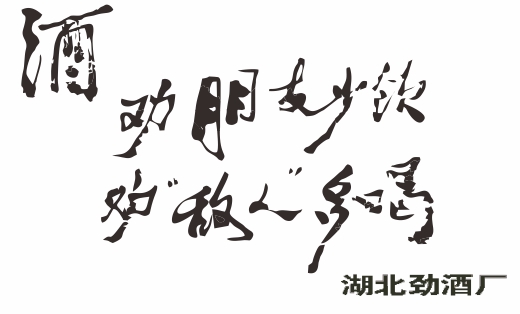 酒
劝朋友少饮
劝“敌人”多喝
湖北劲酒厂